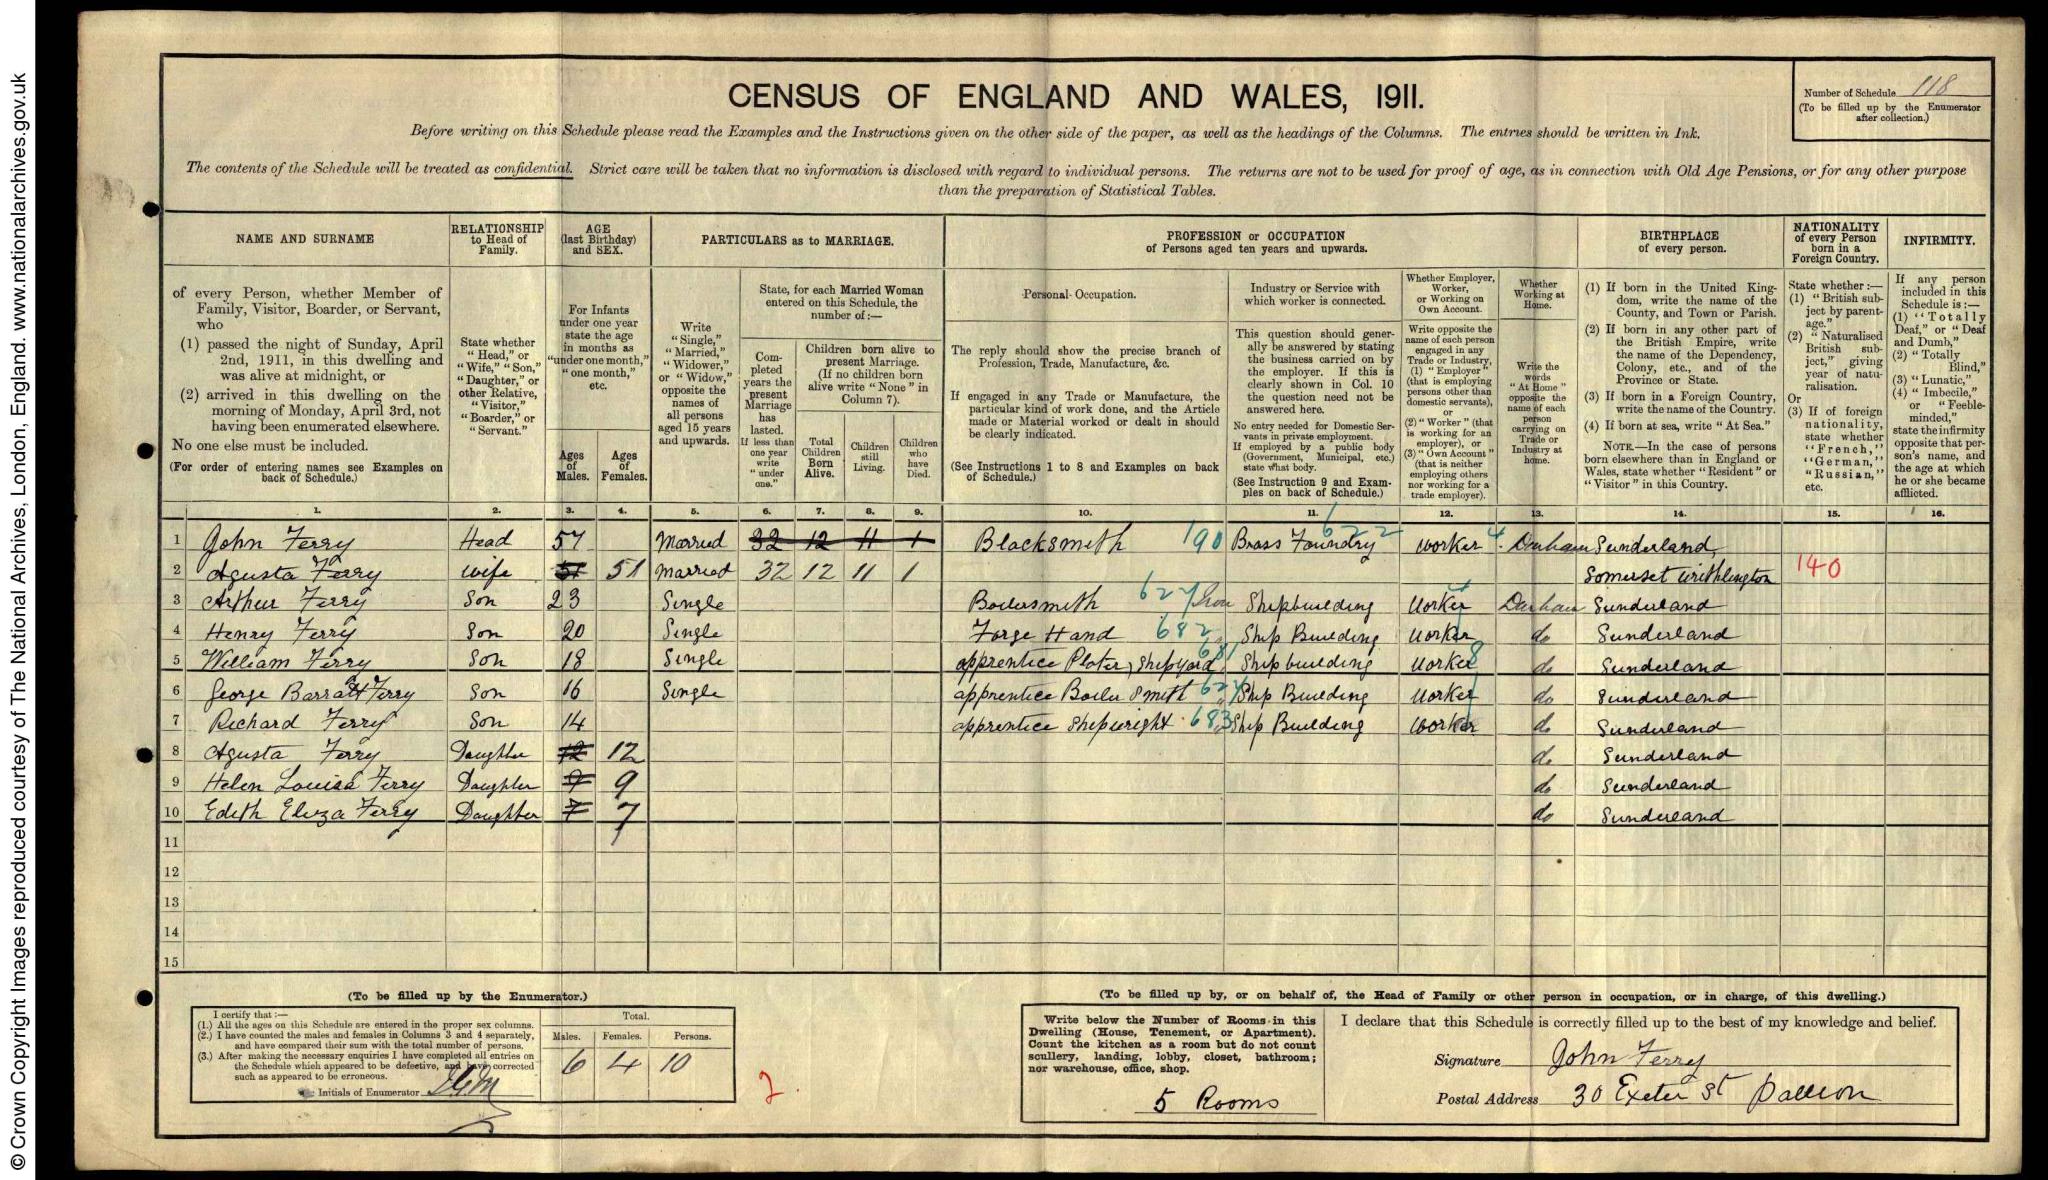 © Crown Copyright Images reproduced courtesy of The National Archives, London, England. www.nationalarchives.gov.uk
CENSUS OF ENGLAND AND WALES, 1911.
Number of Schedule 118
(To be filled up by the Enumerator
after collection.)
Before writing on this Schedule please read the Examples and the Instructions given on the other side of the paper, as well as the headings of the Columns. The entries should be written in Ink.
The contents of the Schedule will be treated as confidential. Strict care will be taken that no information is disclosed with regard to individual persons. The returns are not to be used for proof of age, as in connection with Old Age Pensions, or for any other purpose
than the preparation of Statistical Tables.
NAME AND SURNAME
of every Person, whether Member of
Family, Visitor, Boarder, or Servant,
who
(1) passed the night of Sunday, April
2nd, 1911, in this dwelling and
was alive at midnight, or
(2) arrived in this dwelling on the
morning of Monday, April 3rd, not
having been enumerated elsewhere.
No one else must be included.
(For order of entering names see Examples on
back of Schedule.)
RELATIONSHIP
to Head of
Family.
State whether
"Head," or
"Wife," "Son,"
"Daughter," or
other Relative,
"Visitor,"
"Boarder," or
"Servant."
AGE
(last Birthday)
and SEX.
For Infants
under one year
state the age
in months as
"under one month,"
"one month,"
etc.
Ages
of
Males.
Ages
of
Females.
PARTICULARS as to MARRIAGE.
Write
"Single,"
"Married,"
"Widower,"
or "Widow,"
opposite the
names of
all persons
aged 15 years
and upwards.
State, for each Married Woman
entered on this Schedule, the
number of:—
Com-
pleted
years the
present
Marriage
has
lasted.
If less than
one year
write
"under
one."
Children born alive to
present Marriage.
(If no children born
alive write "None" in
Column 7).
Total
Children
Born
Alive.
Children
still
Living.
Children
who
have
Died.
PROFESSION or OCCUPATION
of Persons aged ten years and upwards.
Personal Occupation.
The reply should show the precise branch of
Profession, Trade, Manufacture, &c.
If engaged in any Trade or Manufacture, the
particular kind of work done, and the Article
made or Material worked or dealt in should
be clearly indicated.
(See Instructions 1 to 8 and Examples on back
of Schedule.)
Industry or Service with
which worker is connected.
This question should gener-
ally be answered by stating
the business carried on by
the employer. If this is
clearly shown in Col. 10
the question need not be
answered here.
No entry needed for Domestic Ser-
vants in private employment.
If employed by a public body
(Government, Municipal, etc.)
state what body.
(See Instruction 9 and Exam-
ples on back of Schedule.)
Whether Employer,
Worker,
or Working on
Own Account.
Write opposite the
name of each person
engaged in any
Trade or Industry,
(1) "Employer"
(that is employing
persons other than
domestic servants),
or
(2) "Worker" (that
is working for an
employer), or
(3) "Own Account"
(that is neither
employing others
nor working for a
trade employer).
Whether
Working at
Home.
Write the
words
"At Home"
opposite the
name of each
person
carrying on
Trade or
Industry at
home.
BIRTHPLACE
of every person.
(1) If born in the United King-
dom, write the name of the
County, and Town or Parish.
(2) If born in any other part of
the British Empire, write
the name of the Dependency,
Colony, etc., and of the
Province or State.
(3) If born in a Foreign Country,
write the name of the Country.
(4) If born at sea, write "At Sea."
NOTE.—In the case of persons
born elsewhere than in England or
Wales, state whether "Resident" or
"Visitor" in this Country.
NATIONALITY
of every Person
born in a
Foreign Country.
State whether:—
(1) "British sub-
ject by parent-
age."
(2) "Naturalised
British sub-
ject," giving
year of natu-
ralisation.
Or
(3) If of foreign
nationality,
state whether
"French,"
"German,"
"Russian,"
etc.
INFIRMITY.
If any person
included in this
Schedule is:—
(1) "Totally
Deaf," or "Deaf
and Dumb,"
(2) "Totally
Blind,"
(3) "Lunatic,"
(4) "Imbecile,"
or "Feeble-
minded,"
state the infirmity
opposite that per-
son's name, and
the age at which
he or she became
afflicted.
1. 2. 3. 4. 5. 6. 7. 8. 9. 10. 11. 12. 13. 14. 15. 16.
1 John Ferry Head 57 Married 32 12 11 1 Blacksmith 190 Brass Foundry 622 Worker 4 Durham Sunderland
2 Agusta Ferry Wife 51 51 Married 32 12 11 1 Somerset Writhlington 140
3 Arthur Ferry Son 23 Single Boilersmith 627 Iron Shipbuilding Worker Durham Sunderland
4 Henry Ferry Son 20 Single Forge Hand 682 Ship Building Worker do Sunderland
5 William Ferry Son 18 Single apprentice Plater, Shipyard 681 Shipbuilding Worker 8 do Sunderland
6 George Barratt Ferry Son 16 Single apprentice Boiler Smith 627 Ship Building Worker do Sunderland
7 Richard Ferry Son 14 apprentice Shipwright 683 Ship Building Worker do Sunderland
8 Agusta Ferry Daughter 12 12 do Sunderland
9 Helen Louisa Ferry Daughter 9 9 do Sunderland
10 Edith Eliza Ferry Daughter 7 7 do Sunderland
11
12
13
14
15
(To be filled up by the Enumerator.)
I certify that:—
(1.) All the ages on this Schedule are entered in the proper sex columns.
(2.) I have counted the males and females in Columns 3 and 4 separately,
and have compared their sum with the total number of persons.
(3.) After making the necessary enquiries I have completed all entries on
the Schedule which appeared to be defective, and have corrected
such as appeared to be erroneous.
Initials of Enumerator
Total.
Males. Females. Persons.
6 4 10
2
(To be filled up by, or on behalf of, the Head of Family or other person in occupation, or in charge, of this dwelling.)
Write below the Number of Rooms in this
Dwelling (House, Tenement, or Apartment).
Count the kitchen as a room but do not count
scullery, landing, lobby, closet, bathroom;
nor warehouse, office, shop.
5 Rooms
I declare that this Schedule is correctly filled up to the best of my knowledge and belief.
Signature John Ferry
Postal Address 30 Exeter St Pallion